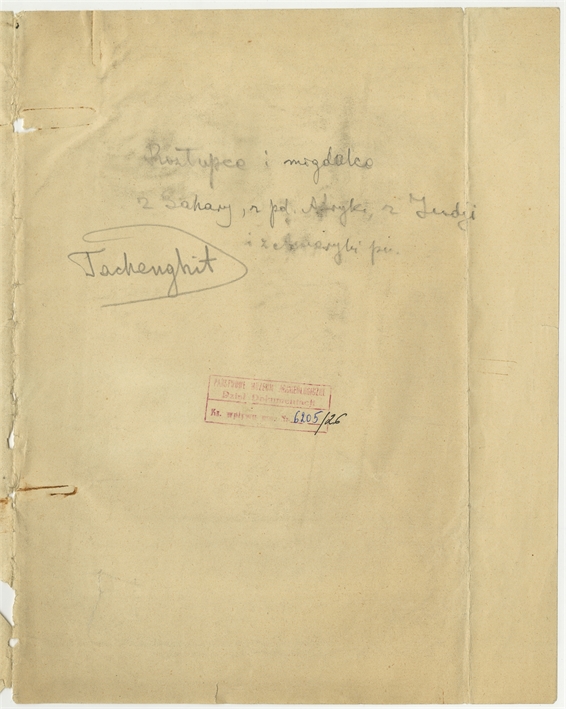 Rozłupce i migdałce
z Sahary, z pd. Afryki, z Indji
i z Ameryki pn.
Tachenghit
PAŃSTWOWE MUZEUM ARCHEOLOGICZNE
Dział Dokumentacji
Ks. wpływu Nr. 6205/26